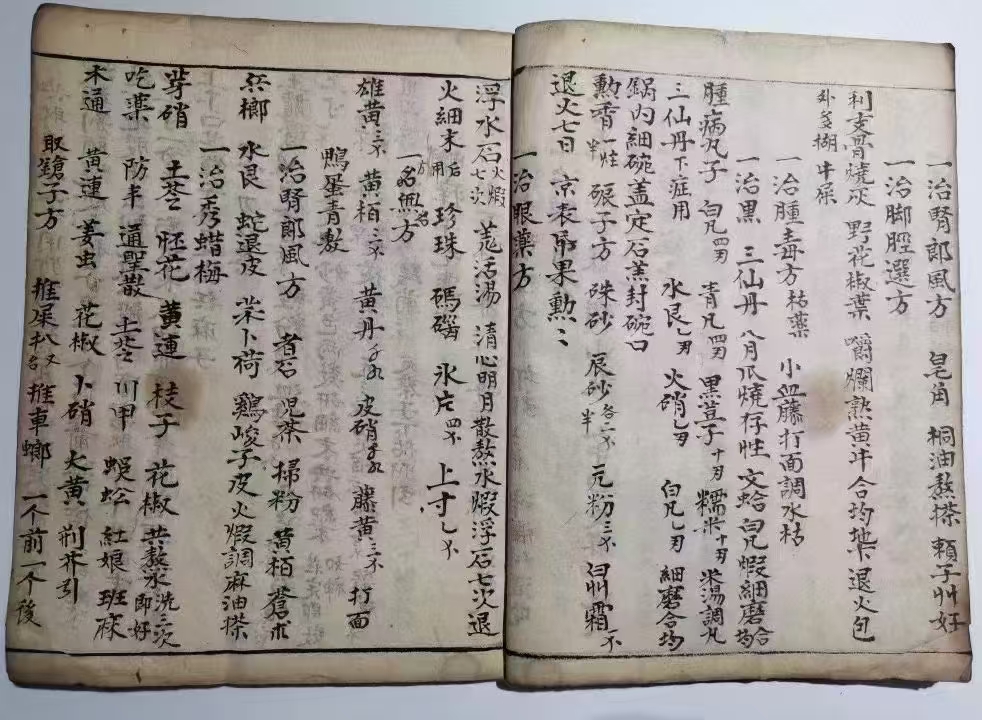 一治腎郎風方 皂角 桐油熬搽 賴子艸好
一治脚脛選方
利支骨燒灰 野花椒葉 嚼爛熟黄牛合均地藥退火包
外 糊牛屎
一治腫毒方 枯藥 小血藤打面調水枯
一治黑 三仙丹 八月爪燒存性 文蛤白凡煆細磨合均
腫病丸子 白凡四刃 青凡四刃 黑荳子十刃 糯米十刃 米湯調丸
三仙丹下症用 水艮乙刃 火硝乙刃 白凡乙刃 細磨合均
鍋内細碗盖定石羔封碗口
勳香一炷半 礬子方 硃砂 辰砂各二卜半 元粉三卜 白艸霜卜
退火七日 京表 果勳〻
一治眼薬方
浮水石火煆七次 羗活湯 清心明月散熬水煆浮石七次退
火細末后用 珍珠 碼磘 氷片四卜 上寸乙卜
一名無方
雄黄三卜 黄栢三卜 黄丹 皮硝 藤黄三卜 打面
鴨蛋青敷
一治腎郎風方 者石 児茶 掃粉 黄栢 蒼术
水艮 蛇退皮 苿卜荷 鷄峻子皮火煆調麻油搽
榔
一治秀蜡梅
芽硝 土苓 怀花 黄連 枝子 花椒 共熬水洗三次即好
吃薬 防丰 通聖散 土苓 川甲 蜈蚣 紅娘 班麻
木通 黄連 姜虫 花椒 卜硝 大黄 荆芥引
取鎗子方 推屎扒又名推車螂 一个前一个後